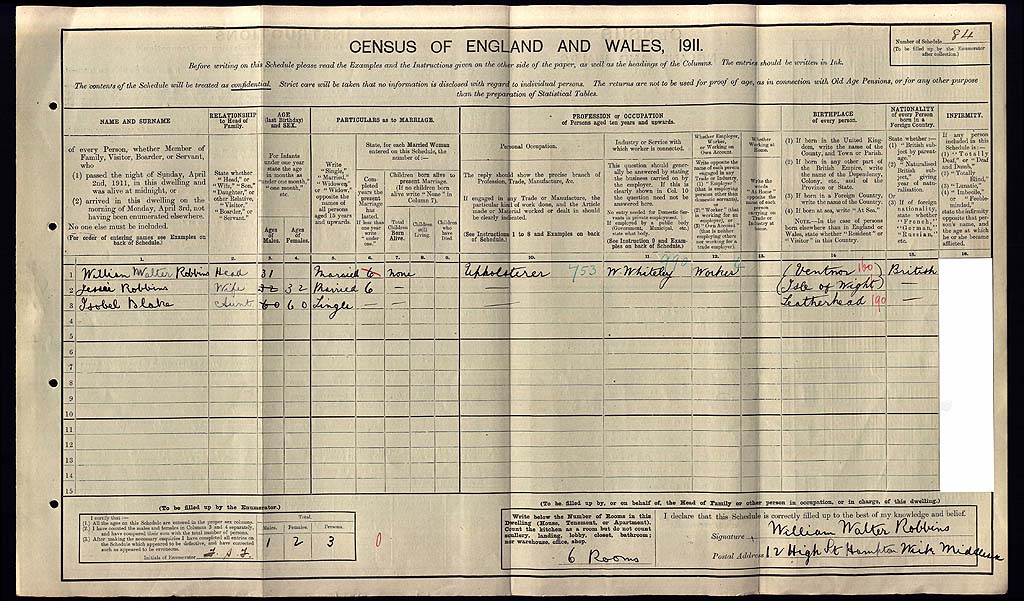 Number of Schedule 84
(To be filled up by the Enumerator after collection.)
CENSUS OF ENGLAND AND WALES, 1911.
Before writing on this Schedule please read the Examples and the Instructions given on the other side of the paper, as well as the headings of the Columns. The entries should be written in Ink.
The contents of the Schedule will be treated as confidential. Strict care will be taken that no information is disclosed with regard to individual persons. The returns are not to be used for proof of age, as in connection with Old Age Pensions, or for any other purpose
than the preparation of Statistical Tables.
NAME AND SURNAME
of every Person, whether Member of
Family, Visitor, Boarder, or Servant,
who
(1) passed the night of Sunday, April
2nd, 1911, in this dwelling and
was alive at midnight, or
(2) arrived in this dwelling on the
morning of Monday, April 3rd, not
having been enumerated elsewhere.
No one else must be included.
(For order of entering names see Examples on
back of Schedule.)
RELATIONSHIP
to Head of
Family.
State whether
"Head," or
"Wife," "Son,"
"Daughter," or
other Relative,
"Visitor,"
"Boarder," or
"Servant."
AGE
(last Birthday)
and SEX.
For Infants
under one year
state the age
in months as
"under one month,"
"one month,"
etc.
Ages of Males.
Ages of Females.
PARTICULARS as to MARRIAGE.
Write
"Single,"
"Married,"
"Widower,"
or "Widow,"
opposite the
names of all
persons aged
15 years and
upwards.
State, for each Married Woman
entered on this Schedule, the
number of:—
Completed years the present Marriage has lasted. If less than one year write "under one."
Children born alive to present Marriage. (If no children born alive write "None" in Column 7).
Total Children Born Alive.
Children still Living.
Children who have Died.
PROFESSION or OCCUPATION
of Persons aged ten years and upwards.
Personal Occupation.
The reply should show the precise branch of
Profession, Trade, Manufacture, &c.
If engaged in any Trade or Manufacture, the
particular kind of work done, and the Article
made or Material worked or dealt in should
be clearly indicated.
(See Instructions 1 to 8 and Examples on back
of Schedule.)
Industry or Service with
which worker is connected.
This question should generally
be answered by stating
the business carried on by
the employer. If this is
clearly shown in Col. 10
the question need not be
answered here.
No entry needed for Domestic Servants in private employment.
If employed by a public body (Government, Municipal, etc.)
state what body.
(See Instruction 9 and Examples on back of Schedule.)
Whether Employer, Worker, or Working on Own Account.
Whether Working at Home.
BIRTHPLACE
of every person.
(1) If born in the United Kingdom, write the name of the County, and Town or Parish.
(2) If born in any other part of the British Empire, write the name of the Dependency, Colony, etc., and of the Province or State.
(3) If born in a Foreign Country, write the name of the Country.
(4) If born at sea, write "At Sea."
NOTE.—In the case of persons born elsewhere than in England or Wales, state whether "Resident" or "Visitor" in this Country.
NATIONALITY
of every Person born in a Foreign Country.
State whether:—
(1) "British subject by parentage."
(2) "Naturalised British subject," giving year of naturalisation.
Or
(3) If of foreign nationality, state whether "French," "German," "Russian," etc.
INFIRMITY.
If any person included in this Schedule is:—
(1) "Totally Deaf," or "Deaf and Dumb,"
(2) "Totally Blind,"
(3) "Lunatic,"
(4) "Imbecile," or "Feeble-minded,"
state the infirmity opposite that person's name, and the age at which he or she became afflicted.
1. 2. 3. 4. 5. 6. 7. 8. 9. 10. 11. 12. 13. 14. 15. 16.
1 William Walter Robbins Head 31 Married 6 None Upholsterer 753 W. Whiteley Worker (Ventnor 160 British
2 Jessie Robbins Wife 32 32 Married 6 — — — (Isle of Wight) —
3 Isobel Blake Aunt 60 60 Single — — Leatherhead 190 —
4
5
6
7
8
9
10
11
12
13
14
15
(To be filled up by the Enumerator.)
I certify that:—
(1.) All the ages on this Schedule are entered in the proper sex columns.
(2.) I have counted the males and females in Columns 3 and 4 separately, and have compared their sum with the total number of persons.
(3.) After making the necessary enquiries I have completed all entries on the Schedule which appeared to be defective, and have corrected such as appeared to be erroneous.
Initials of Enumerator
Total.
Males. Females. Persons.
1 2 3
0
(To be filled up by, or on behalf of, the Head of Family or other person in occupation, or in charge, of this dwelling.)
Write below the Number of Rooms in this
Dwelling (House, Tenement, or Apartment).
Count the kitchen as a room but do not count
scullery, landing, lobby, closet, bathroom;
nor warehouse, office, shop.
6 Rooms
I declare that this Schedule is correctly filled up to the best of my knowledge and belief.
Signature William Walter Robbins
Postal Address 12 High St Hampton Wick Middlesex